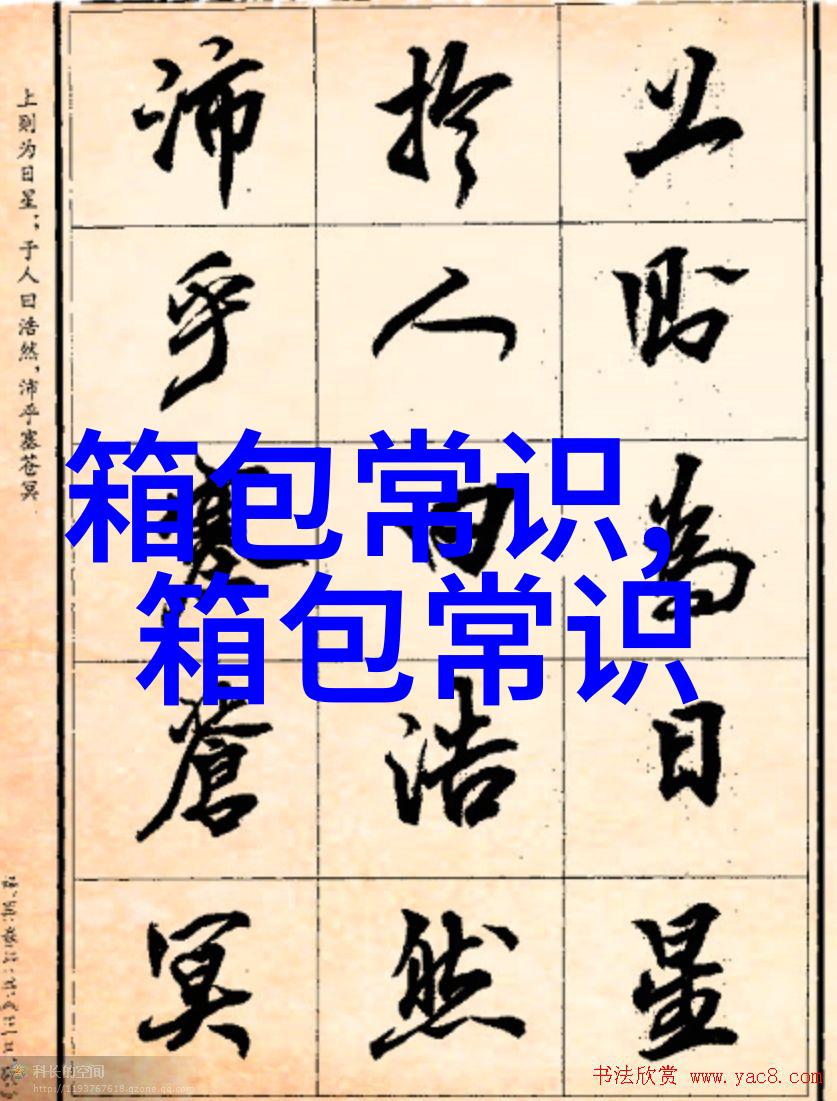 上则为日星；于人曰浩然，沛乎塞苍冥
上則為日星
於人曰浩然
沛乎塞蒼冥
箱包常识，
箱包常识
科长的空间
http://1193767618.qzone.qq.com
书法欣赏 www.yac8.com